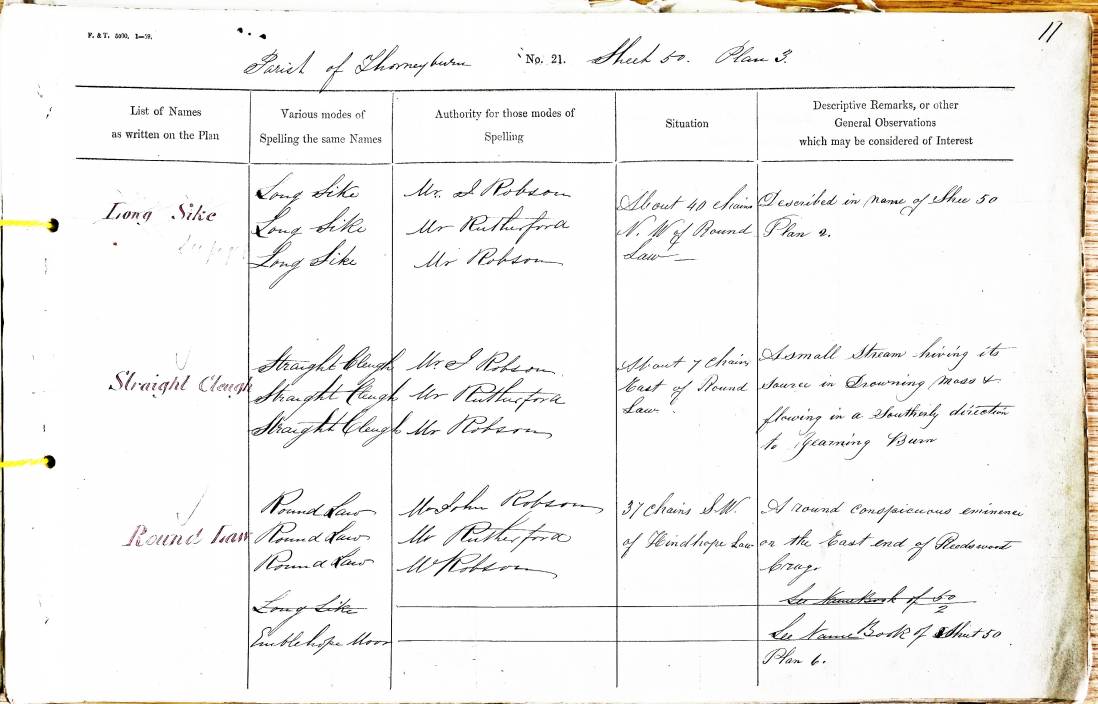 F. & T. 5000. 1—59.
11
Parish of Thorneyburn No. 21. Sheet 50. Plan 3.
List of Names
as written on the Plan
Various modes of
Spelling the same Names
Authority for those modes of
Spelling
Situation
Descriptive Remarks, or other
General Observations
which may be considered of Interest
Long Sike
Long Sike
Long Sike
Long Sike
Mr. J Robson
Mr Rutherford
Mr Robson
About 40 chains
N. W of Round
Law
Described in name of Shee 50
Plan 2.
Straight Cleugh
Straight Cleugh
Straight Cleugh
Straight Cleugh
Mr. J Robson
Mr Rutherford
Mr Robson
About 7 chains
East of Round
Law.
A small Stream having its
source in Drowning Moss &
flowing in a Southerly direction
to Yearning Burn
Round Law
Round Law
Round Law
Round Law
Mr John Robson
Mr Rutherford
Mr Robson
37 chains S.W.
of Hindhope Law
A round conspicuous eminence
on the East end of Reedswood
Crag.
Long Sike
See Name Book of 50/2
Emblehope Moor
See Name Book of Sheet 50
Plan 6.